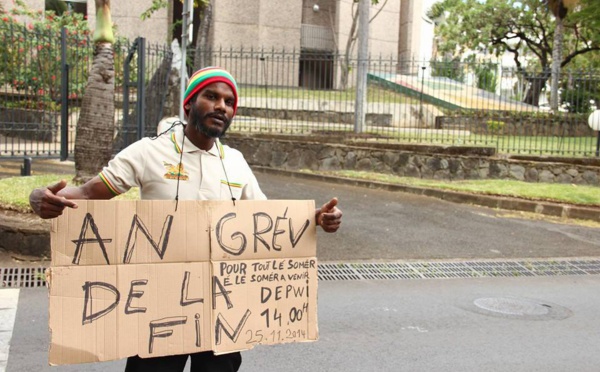 AN GRÉV
DE LA
FIN
POUR TOUT LE SOMER
E LE SOMER A VENIR
DEPWI
14.00H
25.11.2014